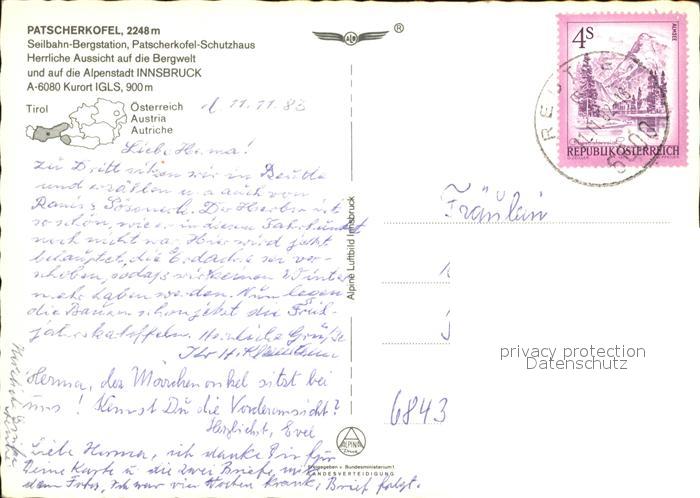 PATSCHERKOFEL, 2248 m
Seilbahn-Bergstation, Patscherkofel-Schutzhaus
Herrliche Aussicht auf die Bergwelt
und auf die Alpenstadt INNSBRUCK
A-6080 Kurort IGLS, 900 m
Tirol
Österreich
Austria
Autriche
®
4S
ALMSEE
REPUBLIK ÖSTERREICH
REUTTE
6600
d. 11.11.83
Liebe Herma!
Zu Dritt sitzen wir in Reutte
und erzählen u. a. auch von
Der Herbst ist
so schön, wie er in diesem Jahrhundert
noch nicht war. Hier wird jetzt
behauptet, die Erdachse sei ver-
schoben, sodaß wir keinen Winter
mehr haben werden. Nun legen
die Bauern schon jetzt die Früh-
jahrskartoffeln. Herzliche Grüße
Ihr H.
Herma, der Märchenonkel sitzt bei
uns! Kennst Du die Vorderansicht?
Herzlichst, Evel
Liebe Herma, ich danke Dir für
Deine Karte u. die zwei Briefe, mit
dem Foto, ich war vier Wochen krank, Brief folgt.
Alpine Luftbild Innsbruck
Fräulein
6843
privacy protection
Datenschutz
ALPINA
Druck
Freigegeben v. Bundesministerium f.
LANDESVERTEIDIGUNG